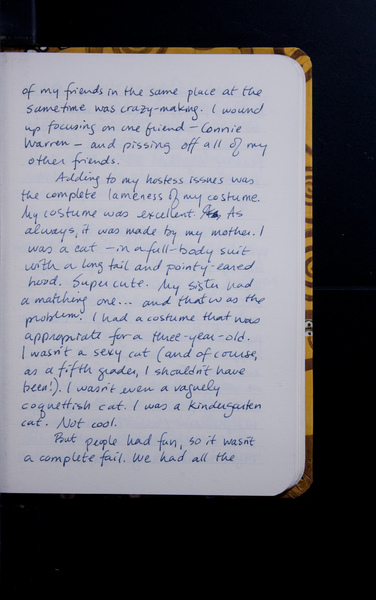 of my friends in the same place at the
sametime was crazy-making. I wound
up focusing on one friend – Connie
Warren – and pissing off all of my
other friends.
Adding to my hostess issues was
the complete lameness of my costume.
My costume was excellent. As
always, it was made by my mother. I
was a cat – in a full-body suit
with a long tail and pointy-eared
hood. Super cute. My sister had
a matching one... and that was the
problem! I had a costume that was
appropriate for a three-year-old.
I wasn't a sexy cat (and of course,
as a fifth grader, I shouldn't have
been!). I wasn't even a vaguely
coquettish cat. I was a kindergarten
cat. Not cool.
But people had fun, so it wasn't
a complete fail. We had all the